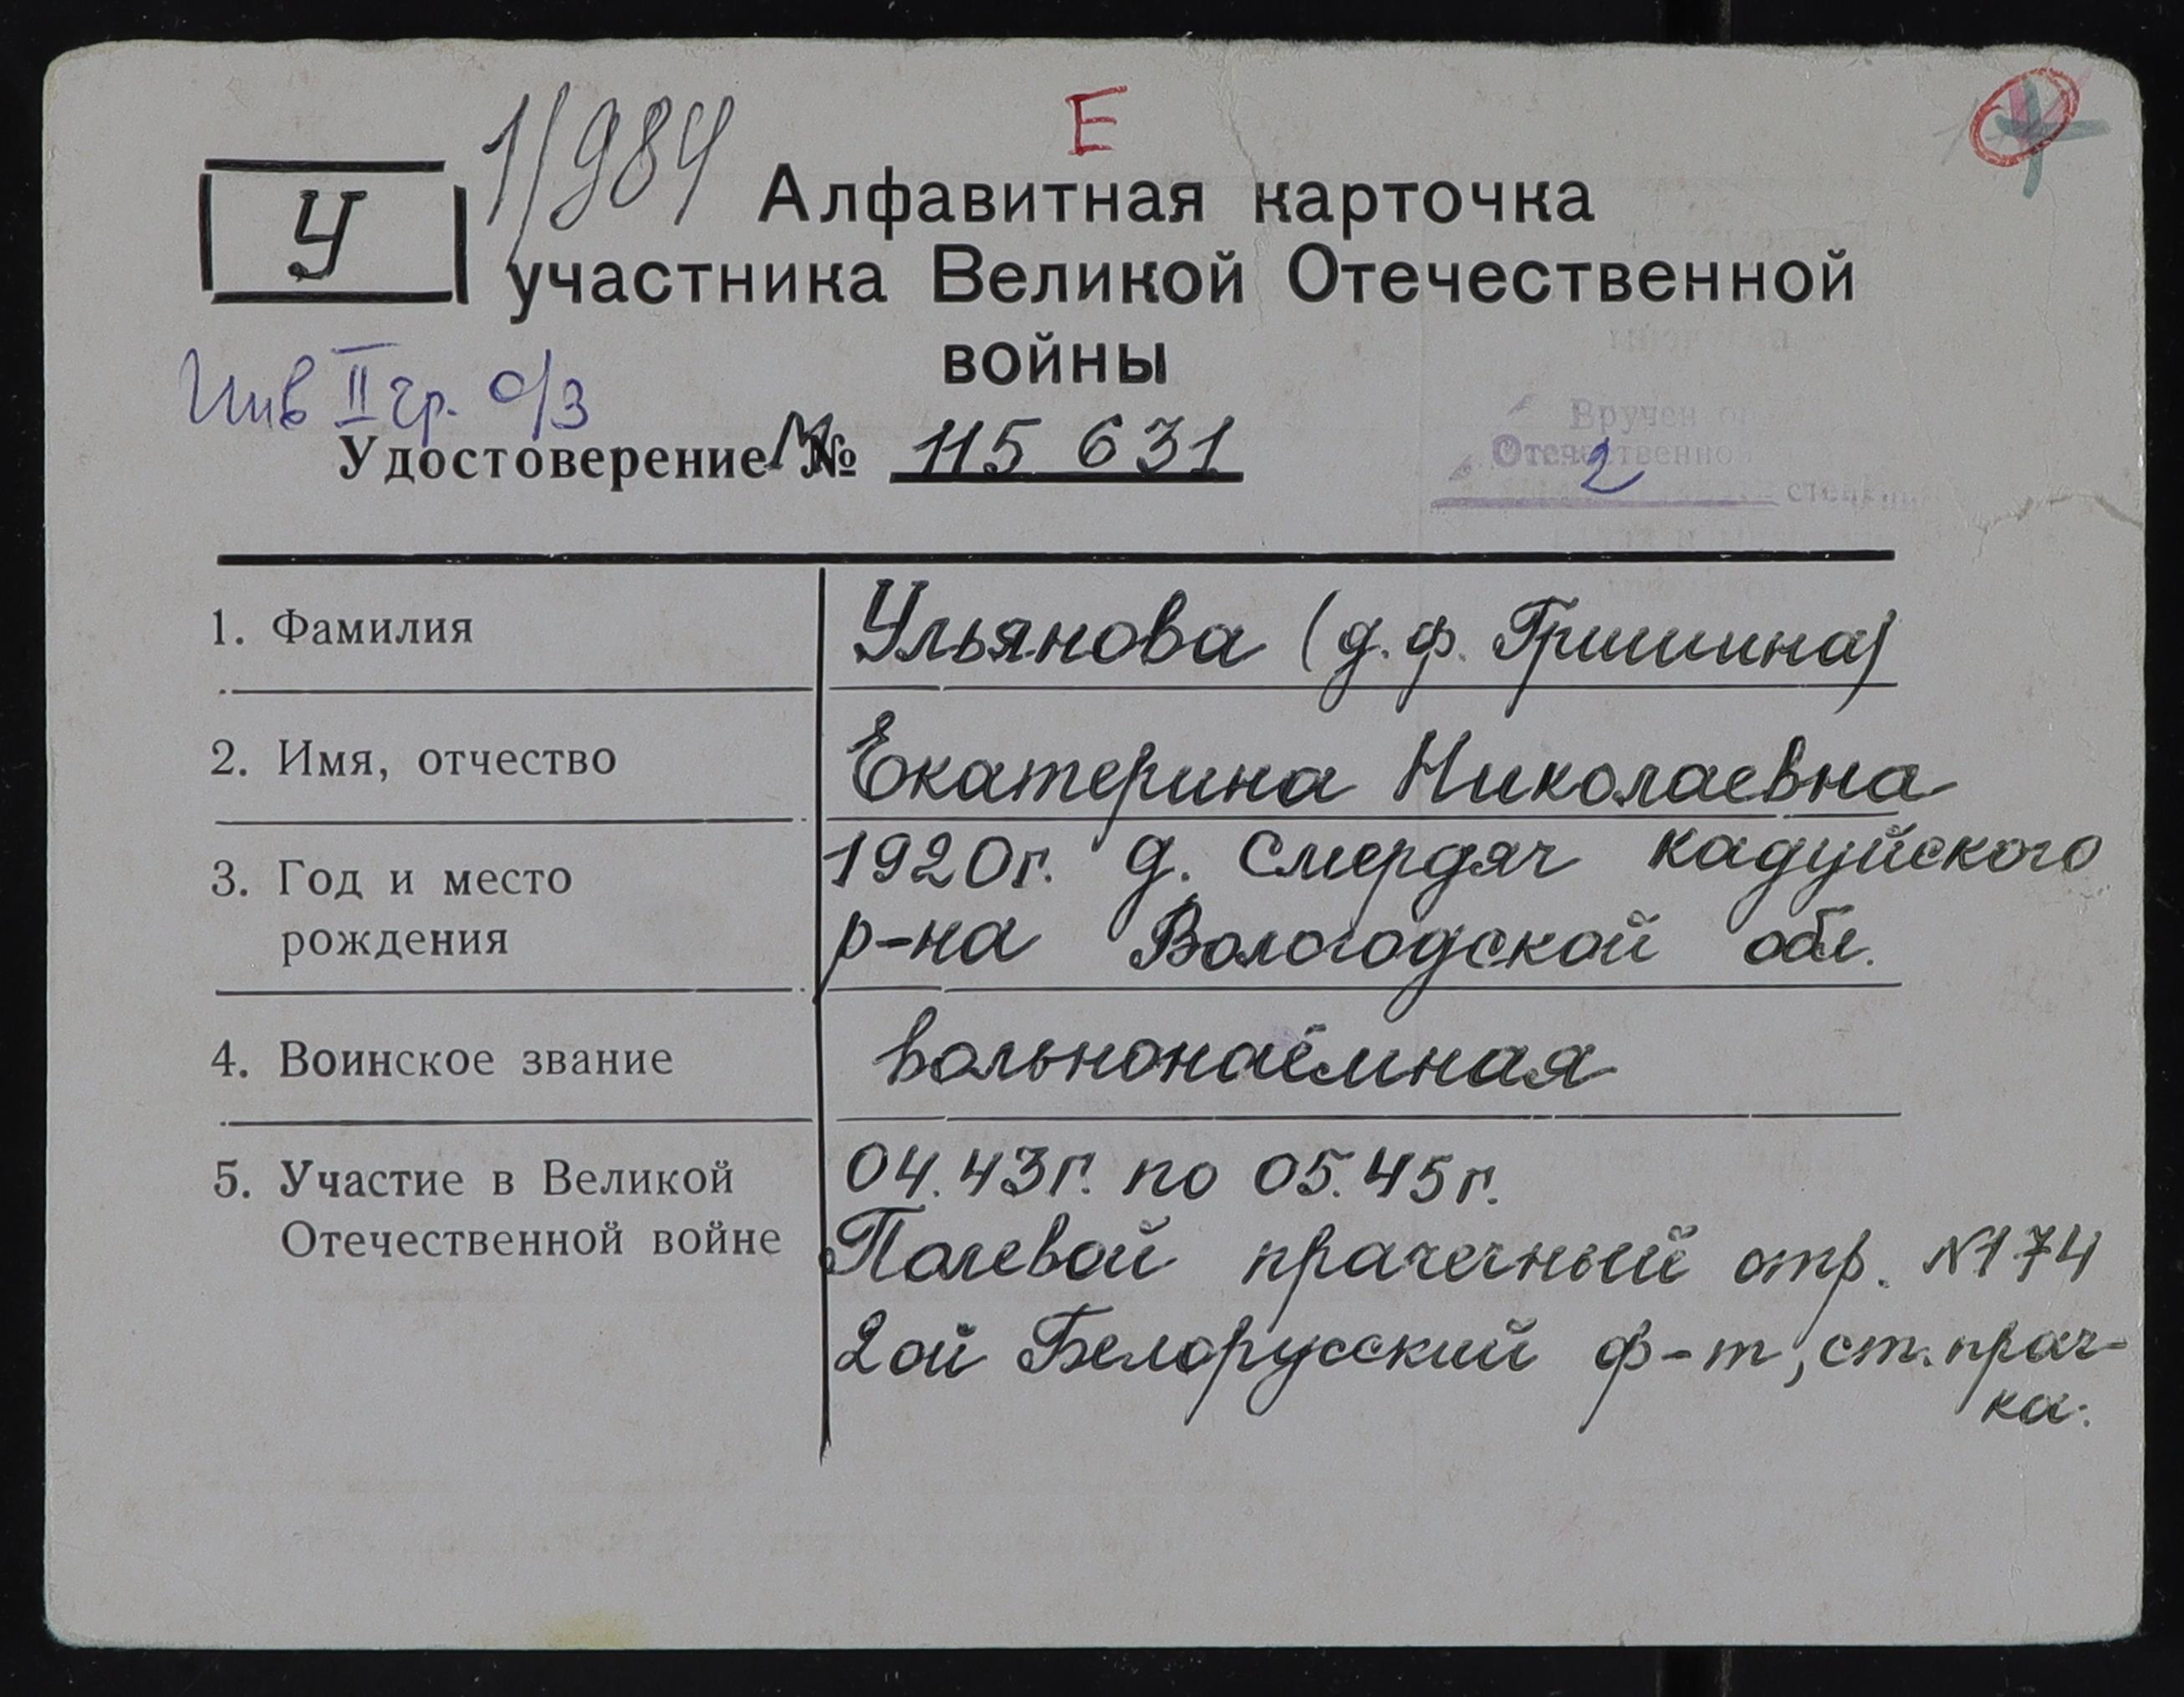 Е
1/984
У
Алфавитная карточка
участника Великой Отечественной
войны
Инв II гр. о/з
Удостоверение № 115 631
Вручен
Отечественной
2 степени
1. Фамилия Ульянова (д.ф. Гришина)
2. Имя, отчество Екатерина Николаевна
3. Год и место 1920г. д. Смердяч Кадуйского
рождения р-на Вологодской обл.
4. Воинское звание вольнонаёмная
5. Участие в Великой 04.43г. по 05.45г.
Отечественной войне Полевой прачечный отр. №174
2ой Белорусский ф-т, ст. прач-
ка.